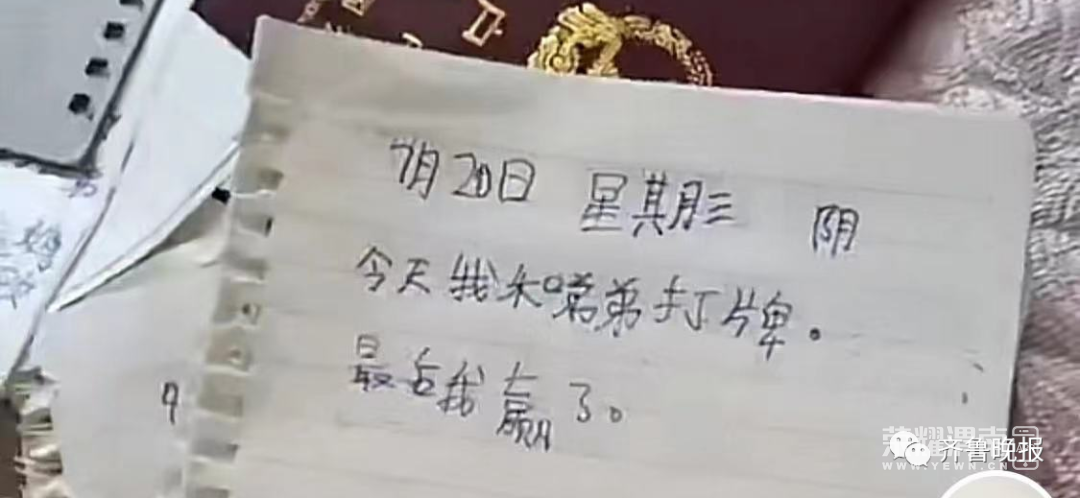 7月20日 星期三 阴
今天我和嘗弟打牌。
最后我赢了。
9
齐鲁晚报
WWW.YEWN.CN